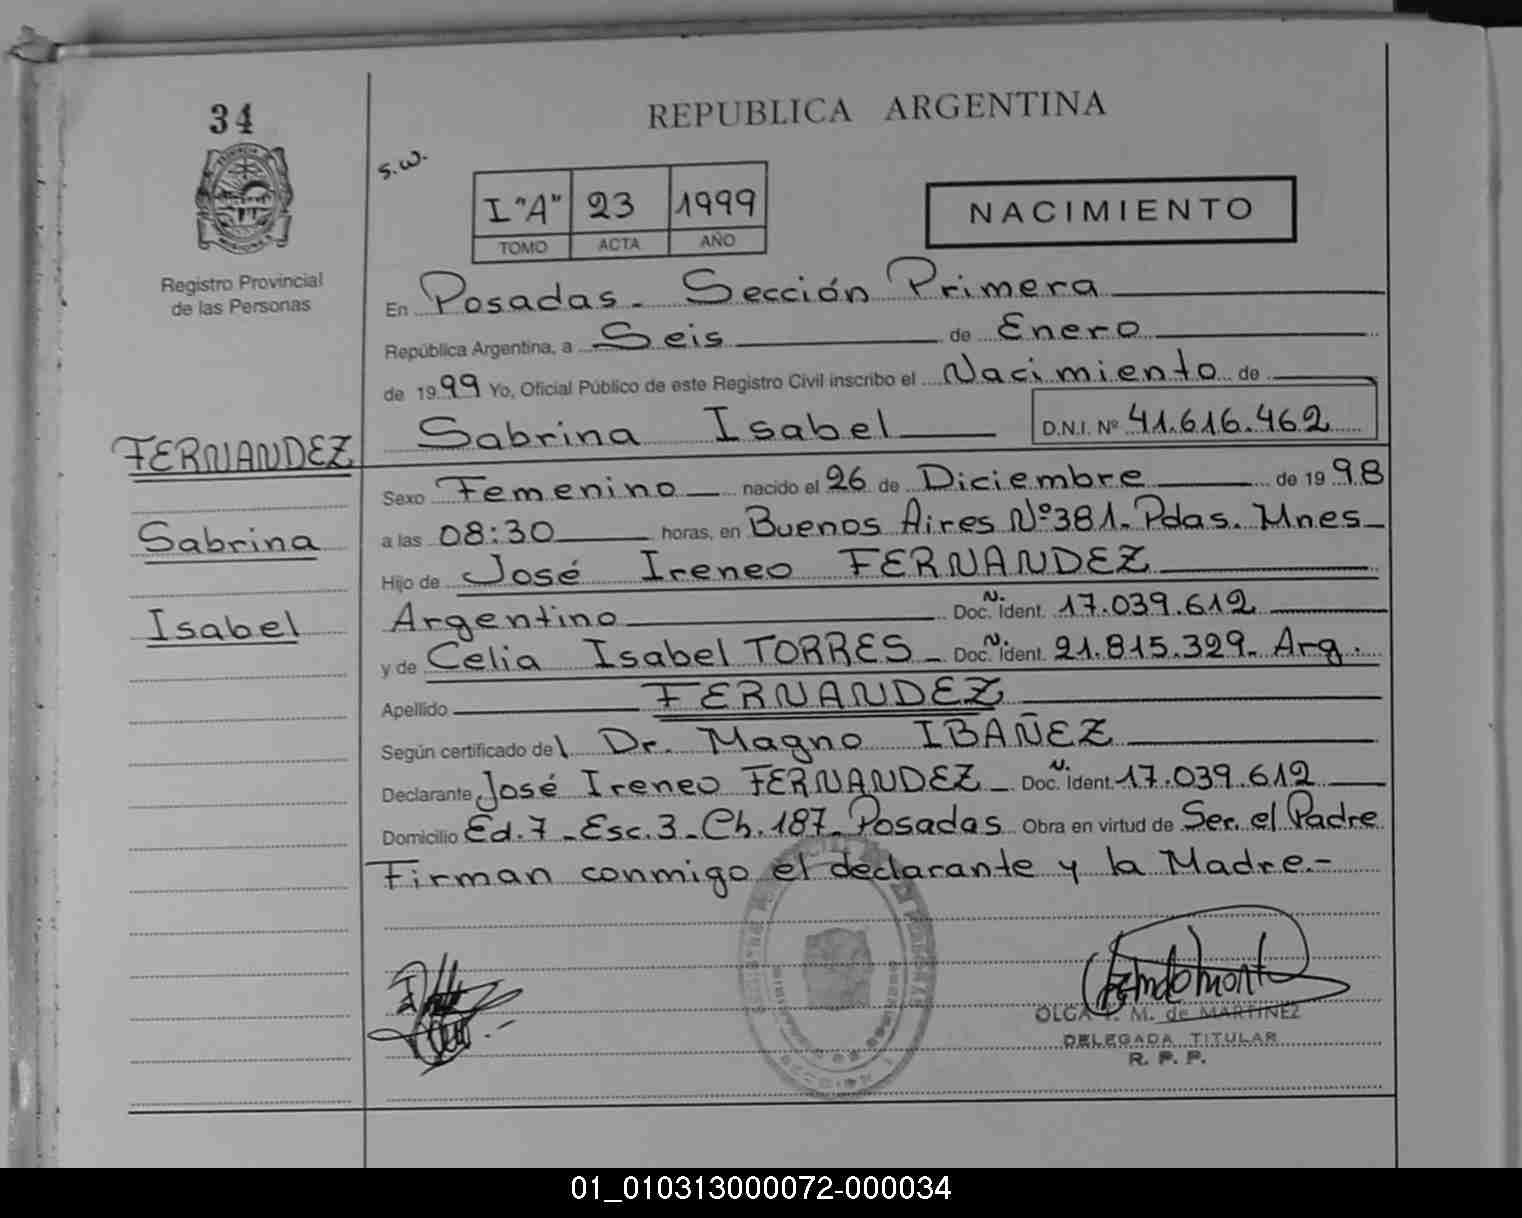 34
REPUBLICA ARGENTINA
s.w.
I "A" 23 1999
TOMO ACTA AÑO
NACIMIENTO
Registro Provincial
de las Personas
En Posadas - Sección Primera
República Argentina, a Seis de Enero
de 1999 Yo, Oficial Público de este Registro Civil inscribo el Nacimiento de
Sabrina Isabel D.N.I. Nº 41.616.462
FERNANDEZ
Sabrina
Isabel
Sexo Femenino nacido el 26 de Diciembre de 1998
a las 08:30 horas, en Buenos Aires Nº 381 - Pdas. Mnes
Hijo de José Ireneo FERNANDEZ
Argentino Doc. N. Ident. 17.039.612
y de Celia Isabel TORRES - Doc. N. Ident. 21.815.329 - Arg.
Apellido FERNANDEZ
Según certificado del Dr. Magno IBAÑEZ
Declarante José Ireneo FERNANDEZ - Doc. N. Ident. 17.039.612
Domicilio Ed. 7 - Esc. 3 - Ch. 187 - Posadas Obra en virtud de Ser el Padre
Firman conmigo el declarante y la Madre.-
OLGA M. de MARTINEZ
DELEGADA TITULAR
R. P. P.
01_010313000072-000034